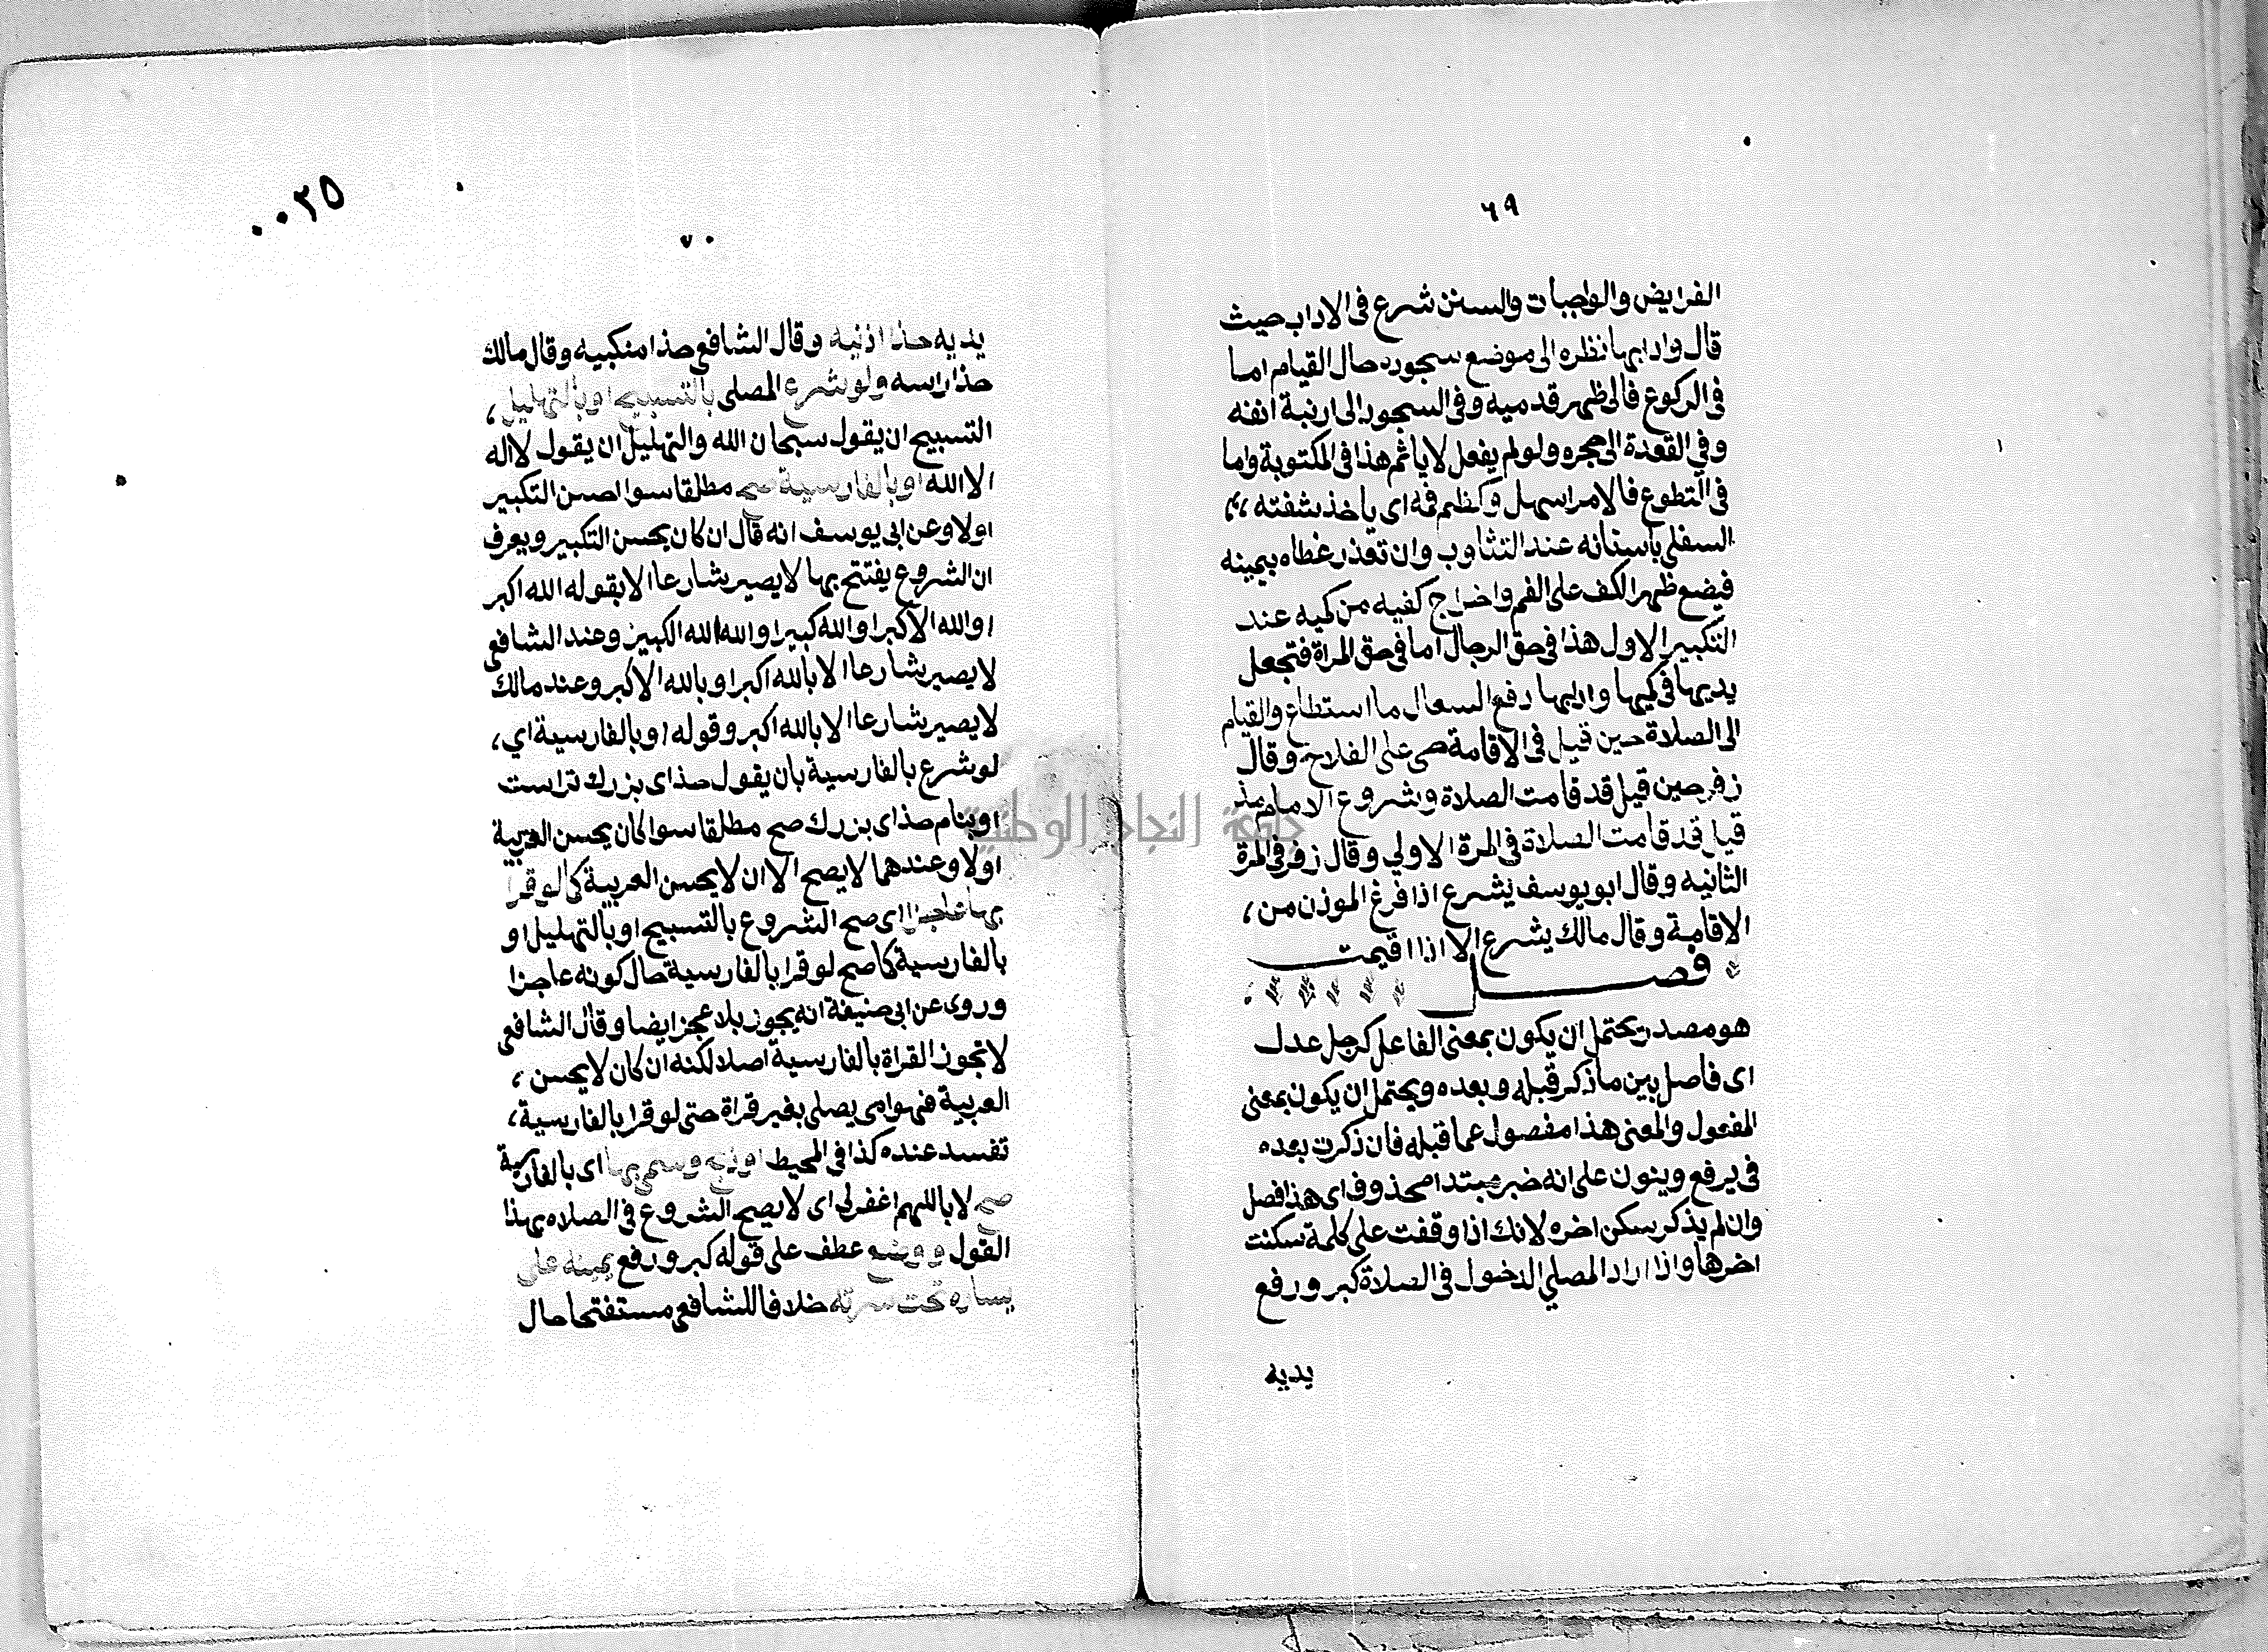 ٦٩
الفرايض والواجبات والسنن شرع في الاداب حيث
قال وادابها نظره الى موضع سجوده حال القيام اما
في الركوع فالى ظهر قدميه وفي السجود الى ارنبة انفه
وفي القعدة الى حجره ولو لم يفعل لا ياثم هذا في المكتوبة واما
في التطوع فالامر اسهل وكظم فمه اى ياخذ شفته
السفلى باسنانه عند التثاوب وان تعذر غطاه بيمينه
فيضع ظهر الكف على الفم واخراج كفيه من كميه عند
التكبير الاول هذا في حق الرجال اما في حق المراة فتجعل
يديها في كميها وادابها دفع السعال ما استطاع والقيام
الى الصلاة حين قيل في الاقامة حى على الفلاح وقال
زفر حين قيل قد قامت الصلاة وشروع الامام مذ
قيل قد قامت الصلاة في المرة الاولي وقال زفر في المرة
الثانيه وقال ابو يوسف يشرع اذا فرغ الموذن من ،
الاقامة وقال مالك يشرع الا اذا اقيمت
فصل
هو مصدر يحتمل ان يكون بمعنى الفاعل كرجل عدل
اى فاصل بين ما ذكر قبله وبعده ويحتمل ان يكون بمعنى
المفعول والمعنى هذا مفصول عما قبله فان ذكرت بعده
في يرفع وينون على انه خبر مبتدا محذوف اى هذا فصل
وان لم يذكر سكن اخره لانك اذا وقفت على كلمة سكنت
اخرها واذا اراد المصلي الدخول في الصلاة كبر ورفع
يديه
٠٠٣٥
٧٠
يديه حذا اذنيه وقال الشافعى حذا منكبيه وقال مالك
حذا راسه ولو شرع المصلى بالتسبيح او بالتهليل ،
التسبيح ان يقول سبحان الله والتهليل ان يقول لا اله
الا الله او بالفارسية صح مطلقا سوا احسن التكبير
اولا وعن ابى يوسف انه قال ان كان يحسن التكبير ويعرف
ان الشروع يفتتح بها لا يصير شارعا الا بقوله الله اكبر
او الله الاكبر او الله كبير او الله الله الكبير وعند الشافعى
لا يصير شارعا الا بالله اكبر او بالله الاكبر وعند مالك
لا يصير شارعا الا بالله اكبر وقوله او بالفارسية اي ،
لو شرع بالفارسية بان يقول خداى بزرك تراست
او بنام خداى بزرك صح مطلقا سوا كان يحسن العربية
اولا وعندهما لا يصح الا ان لا يحسن العربية كما لو قرا
بها عاجزا اى صح الشروع بالتسبيح او بالتهليل او
بالفارسية كما صح لو قرا بالفارسية حال كونه عاجزا
وروى عن ابى حنيفة انه يجوز بلا عجز ايضا وقال الشافعى
لا تجوز القراة بالفارسية اصلا لكنه ان كان لا يحسن ،
العربية فهو امى يصلى بغير قراة حتى لو قرا بالفارسية ،
تفسد عنده كذا في المحيط او ذبح وسمى بها اى بالفارسية
صح لا باللهم اغفرلى اى لا يصح الشروع في الصلاه بهذا
القول ووضع عطف على قوله كبر ورفع يمينه على
يساره تحت سرته خلافا للشافعى مستفتحا حال
جامعة النجاح الوطنية